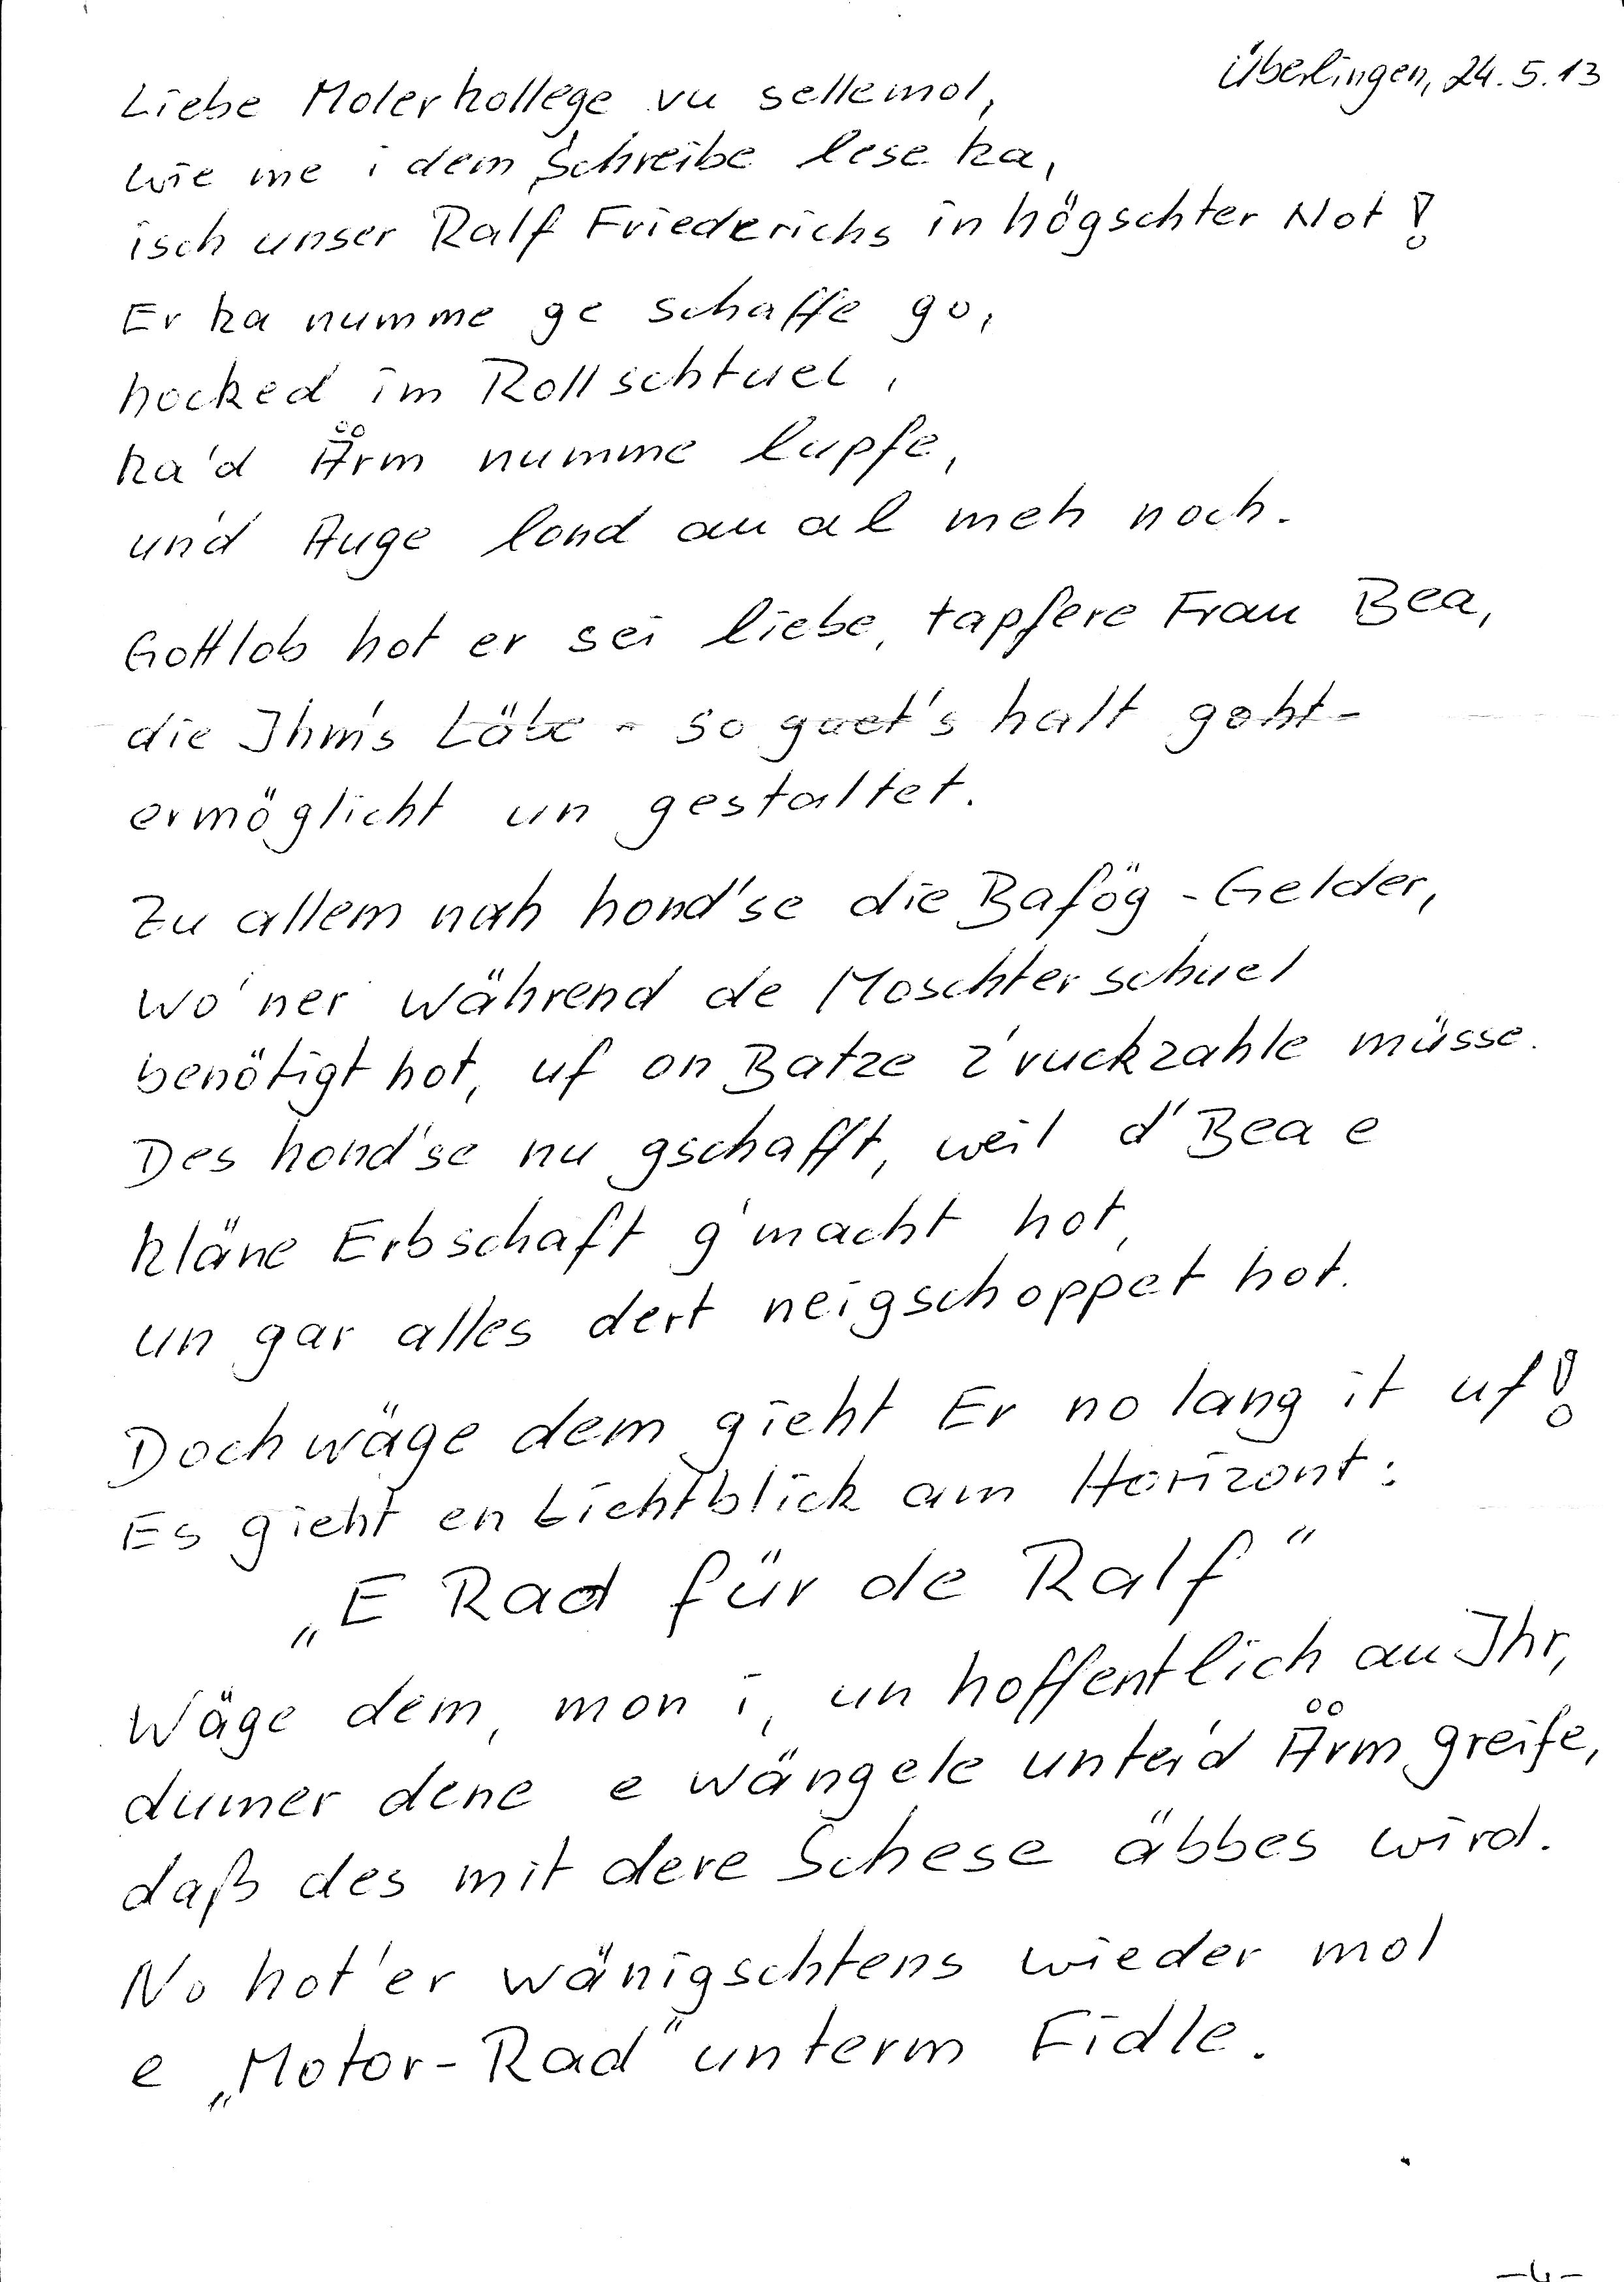 Überlingen, 24.5.13
Liebe Molerkollege vu sellemol,
wie me i dem Schreibe lese ka,
isch unser Ralf Friederichs in högschter Not!
Er ka numme ge schaffe go,
hocked im Rollschtuel,
ka'd Ärm numme lupfe,
und Auge lond au al meh noch.
Gottlob hot er sei liebe, tapfere Frau Bea,
die Ihm's Läbe - so guet's halt goht -
ermöglicht un gestaltet.
Zu allem nah hond'se die Bafög-Gelder,
wo'ner während de Moschterschuel
benötigt hot, uf on Batze z'ruckzahle müsse.
Des hond'se nu gschafft, weil d'Bea e
kläne Erbschaft g'macht hot,
un gar alles dert neigschoppet hot.
Doch wäge dem gieht Er no lang it uf!
Es gieht en Lichtblick am Horizont:
„E Rad für de Ralf"
Wäge dem, mon i, un hoffentlich au Ihr,
dumer dene e wängele unter'd Ärm greife,
daß des mit dere Schese äbbes wird.
No hot'er wänigschtens wieder mol
e „Motor-Rad" unterm Fidle.